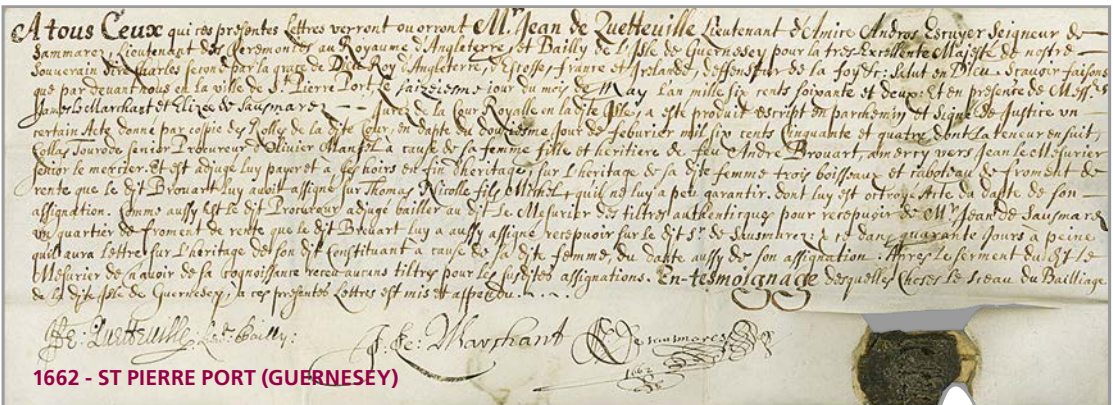 A tous Ceux qui ces presentes Lettres verront ou orront Mr Jean de Quetteville Lieutenant d'Amice Andros Escuyer Seigneur de
Sammarez, Lieutenant des Ceremonies au Royaume d'Angleterre, et Bailly de L'Isle de Guernesey pour la tres Excellente Majesté de nostre
Souverain Sire Charles second par la grace de Dieu Roy d'Angleterre, d'Escosse, France et Irelande, deffenseur de la foy &c: Salut en Dieu. Scavoir faisons
que par devant nous en la ville de St. Pierre Port, le saizeiesme iour du mois de May Lan mille six cents soixante et deux: Et en presence de Messrs
James Le Marchant et Elizée de Sausmarez Jurez de la Cour Royalle en la dite Isle, a esté produit escript en parchemin et signé de Justice un
certain Acte donné par coppie des Rolles de la dite Cour, en datte du douziesme Jour de feburier mil six cents Cinquante et quatre dont la teneur en suit,
Collas Tourode senior Procureur d'Olivier à cause de sa femme fille et heritiere de feu André Brouart, amercy vers Jean le Mesurier
senior le mercier. Et est adjugé luy payer et à ses hoirs en fin d'heritage, sur L'heritage de sa dite femme trois boisseaux et caboteau de froment de
rente que le dit Brouart luy avoit assigné sur Thomas Nicolle fils Michel, quil ne luy a peu garantir. dont luy est octroyé Acte du datte de son
assignation. Comme aussy Est le dit Procureur adjugé bailler au dit Le Mesurier des tiltres authenticques pour recepuoir de Mr Jean de Sausmarez
un quartier de froment de rente que le dit Brouart luy a aussy assigné recepuoir sur le dit Sr. de Sausmarez: & ce dans quarante Jours à peine
quil aura Lettre sur L'heritage de son dit Constituant à cause de sa dite femme, du datte aussy de son assignation. Apres le serment du dit le
Mesurier de n'avoir de sa Cognoissance receu aucuns tiltres pour les susdites assignations. En-tesmoignage desquelles Choses le Sceau du Bailliage
de la dite Isle de Guernesey, à ces presentes Lettres est mis et appendu.
Je: Quetteville: Leut Bailly:
J. Le: Marchant
E de sausmarez
1662
1662 - ST PIERRE PORT (GUERNESEY)